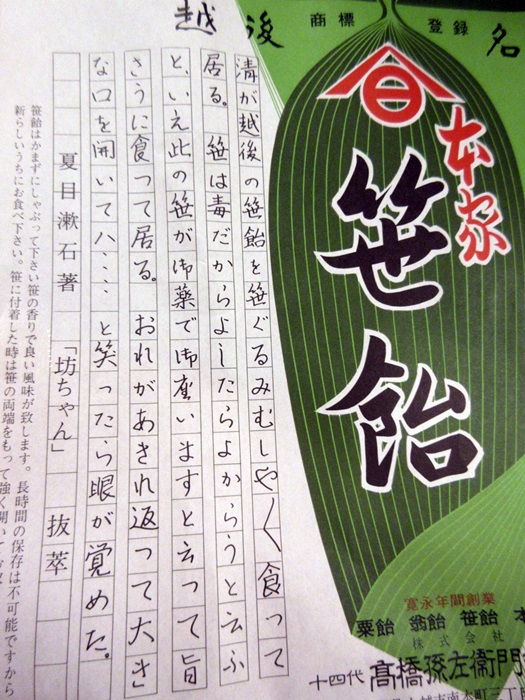 越後名
商標 登録
本家
笹飴
寛永年間創業
粟飴 翁飴 笹飴 本
株式会社
十四代 髙橋孫左衛門
清が越後の笹飴を笹ぐるみむしや〱食って
居る。笹は毒だからよしたらよからうと云ふ
と、いえ此の笹が御薬で御座いますと云って旨
さうに食って居る。おれがあきれ返って大き
な口を開いてハ‥‥と笑ったら眼が覚めた。
夏目漱石著 「坊ちゃん」 抜萃
笹飴はかまずにしゃぶって下さい笹の香りで良い風味が致します。長時間の保存は不可能ですから
新らしいうちにお食べ下さい。笹に付着した時は笹の両端をもって強く開いて